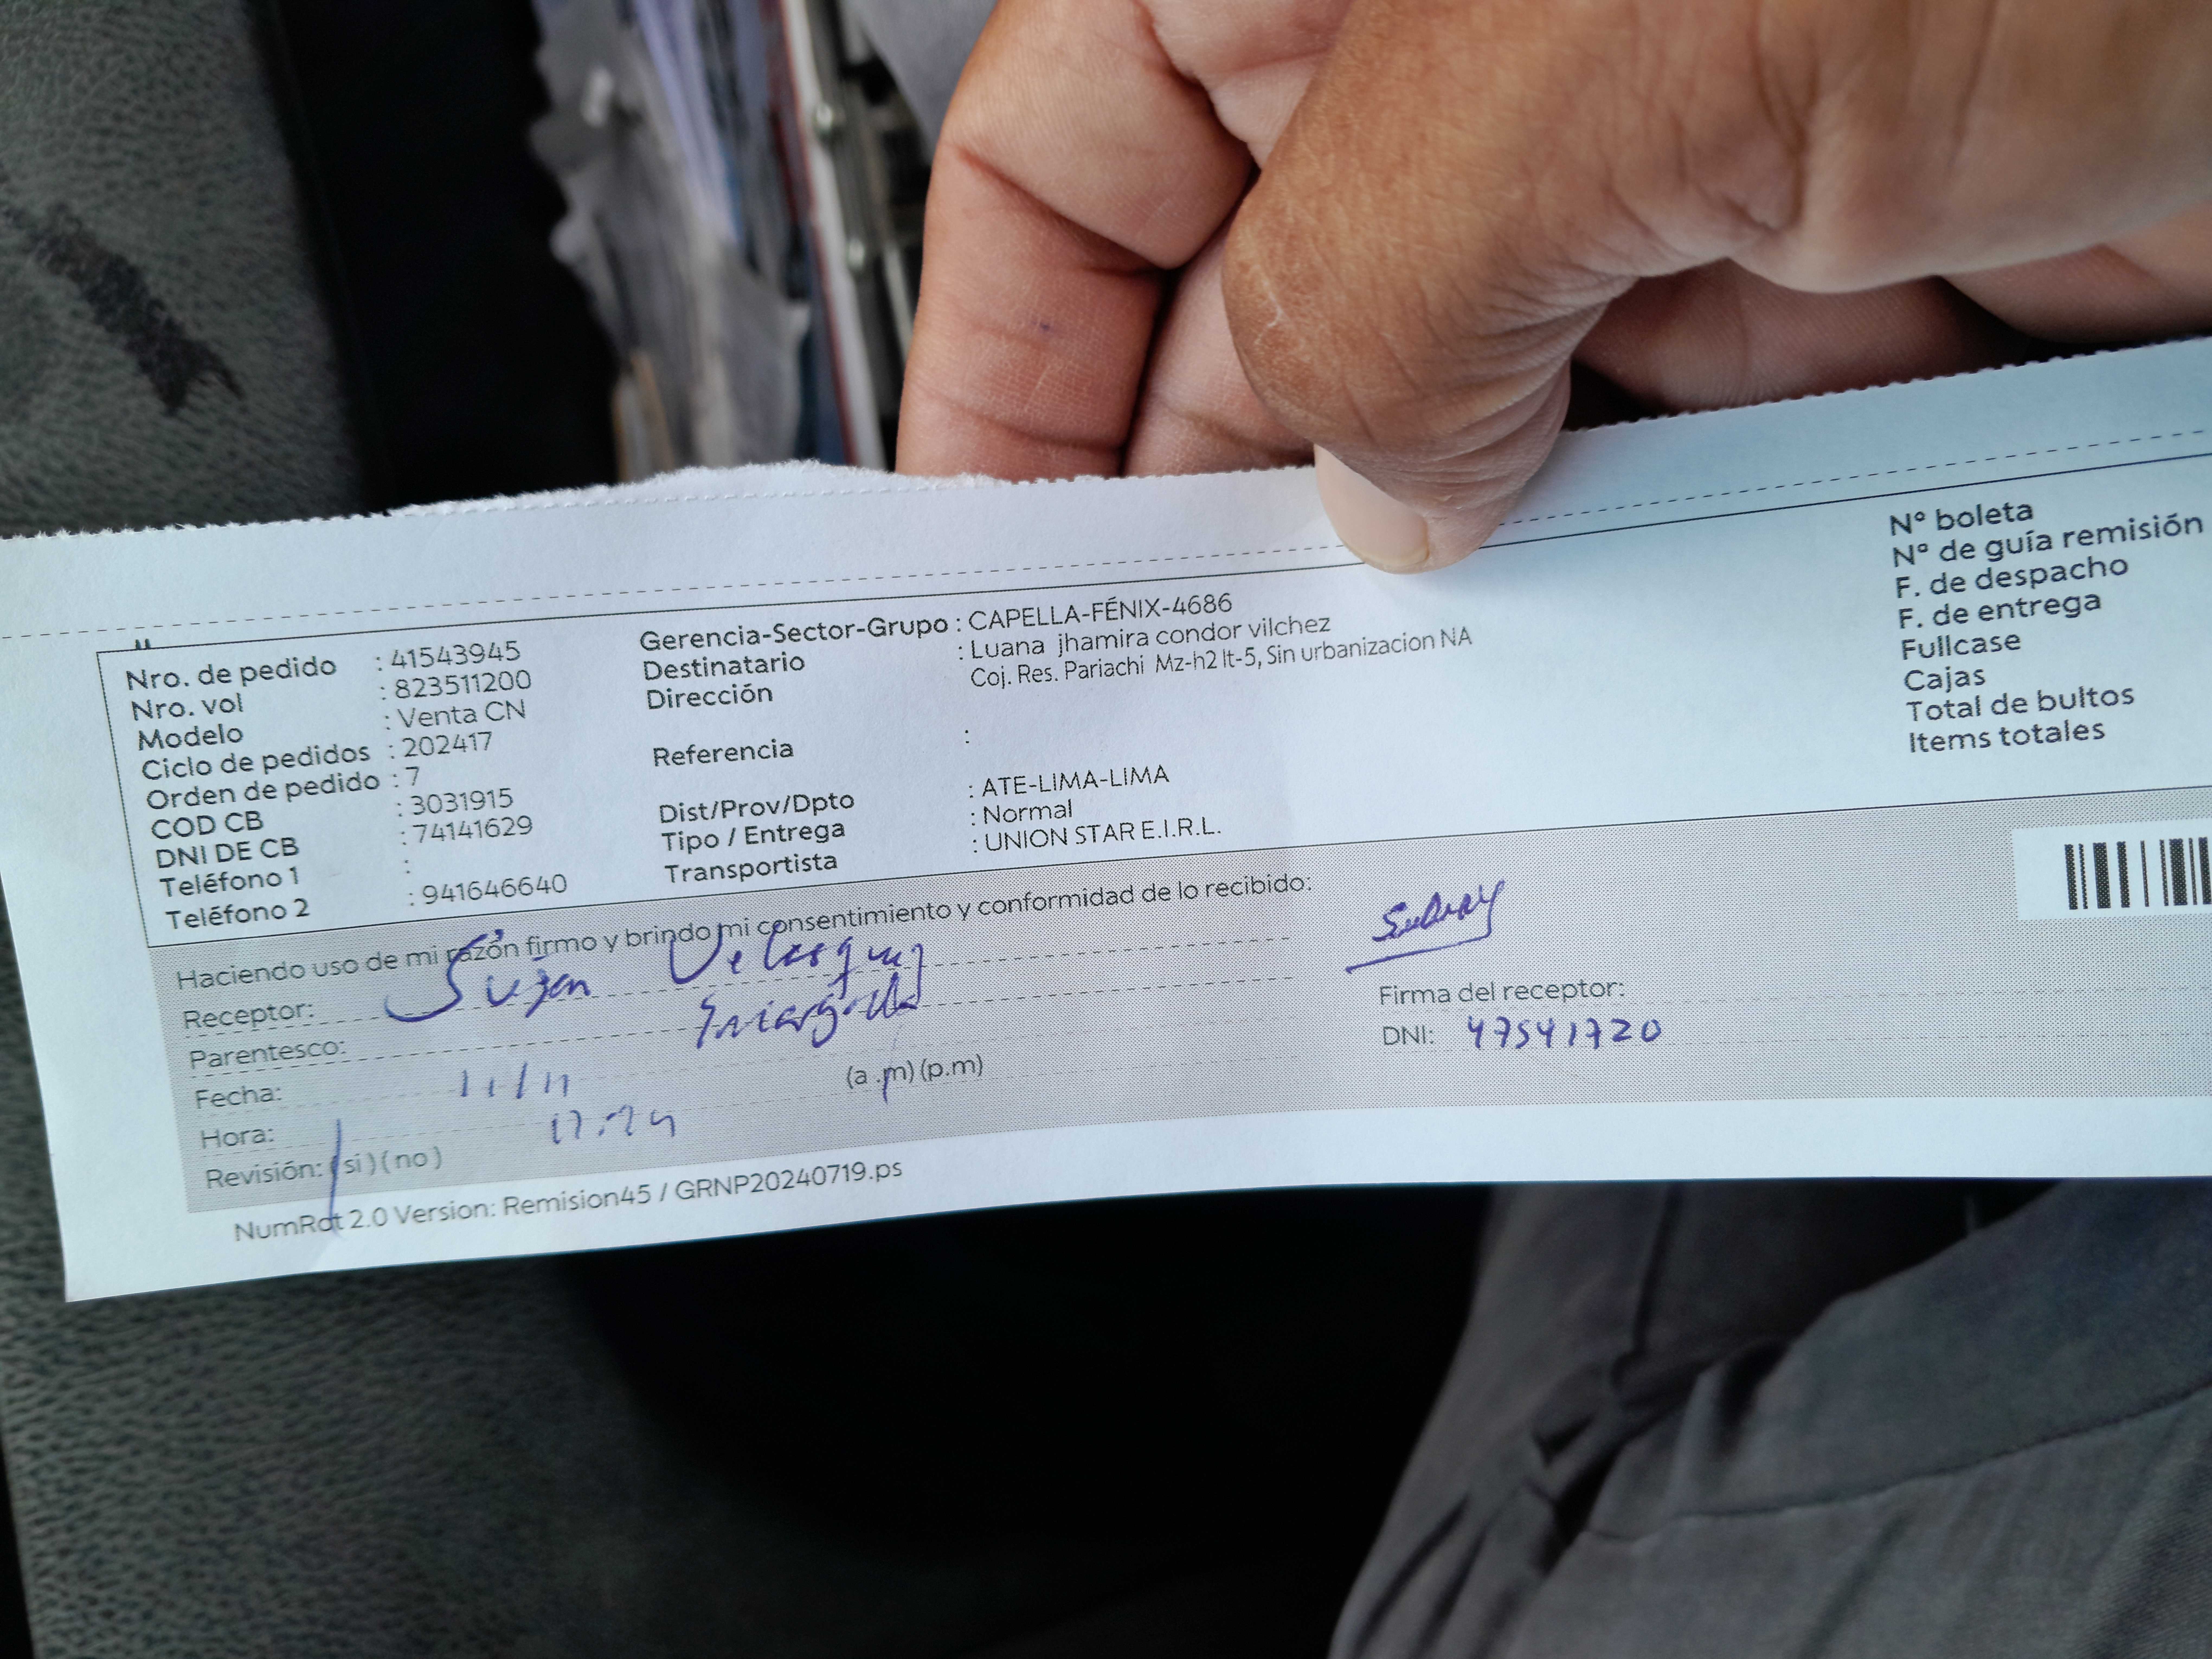 Nro. de pedido : 41543945
Nro. vol : 823511200
Modelo : Venta CN
Ciclo de pedidos : 202417
Orden de pedido : 7
COD CB : 3031915
DNI DE CB : 74141629
Teléfono 1 :
Teléfono 2 : 941646640
Gerencia-Sector-Grupo : CAPELLA-FÉNIX-4686
Destinatario : Luana jhamira condor vilchez
Dirección Coj. Res. Pariachi Mz-h2 lt-5, Sin urbanizacion NA
Referencia :
Dist/Prov/Dpto : ATE-LIMA-LIMA
Tipo / Entrega : Normal
Transportista : UNION STAR E.I.R.L.
N° boleta
N° de guía remisión
F. de despacho
F. de entrega
Fullcase
Cajas
Total de bultos
Items totales
Haciendo uso de mi razón firmo y brindo mi consentimiento y conformidad de lo recibido:
Receptor: Velasquez
Parentesco:
Fecha: 11/11
Hora: (a.m) (p.m)
Revisión: (si) (no)
Firma del receptor:
DNI: 47541720
NumRot 2.0 Version: Remision45 / GRNP20240719.ps